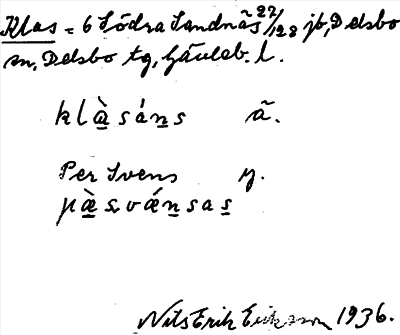 Klas = 6 Södra Sandnäs 27/128 jb, Delsbo
sn, Delsbo tg, Gävleb. l.
klæ̀sáns ã.
Per Svens y.
pæ̀svǽnsas
Nils Erik Eriksson 1936.